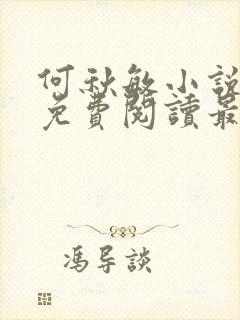 何秋敏小說
免費閱讀最
馮导談